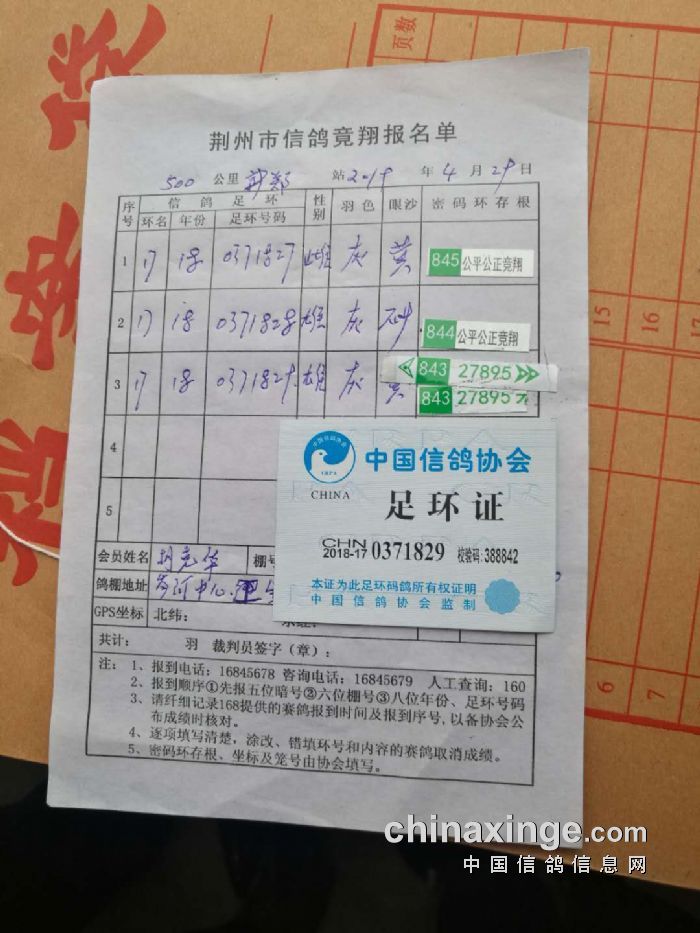 荆州市信鸽竟翔报名单
500 公里 新郑 站 2019 年 4 月 29 日
序号 信鸽足环 性别 羽色 眼沙 密码环存根
环名 年份 足环号码
1 17 18 0371827 雌 灰 黄 845 公平公正竞翔
2 17 18 0371828 雄 灰 砂 844 公平公正竞翔
843 27895
3 17 18 0371829 雄 灰 黄 843 27895
4
5
中国信鸽协会
CHINA
足环证
CHN
2018-17 0371829 校验码:388842
本证为此足环码鸽所有权证明
中国信鸽协会监制
会员姓名 胡 华 棚号
鸽棚地址 中心
GPS坐标 北纬:
共计: 羽 裁判员签字(章):
注: 1、报到电话:16845678 咨询电话:16845679 人工查询:160
2、报到顺序①先报五位暗号②六位棚号③八位年份、足环号码
3、请纤细记录168提供的赛鸽报到时间及报到序号,以备协会公
布成绩时核对。
4、逐项填写清楚,涂改、错填环号和内容的赛鸽取消成绩。
5、密码环存根、坐标及笼号由协会填写。
页数
15
16
17
6
7
chinaxinge.com
中国信鸽信息网